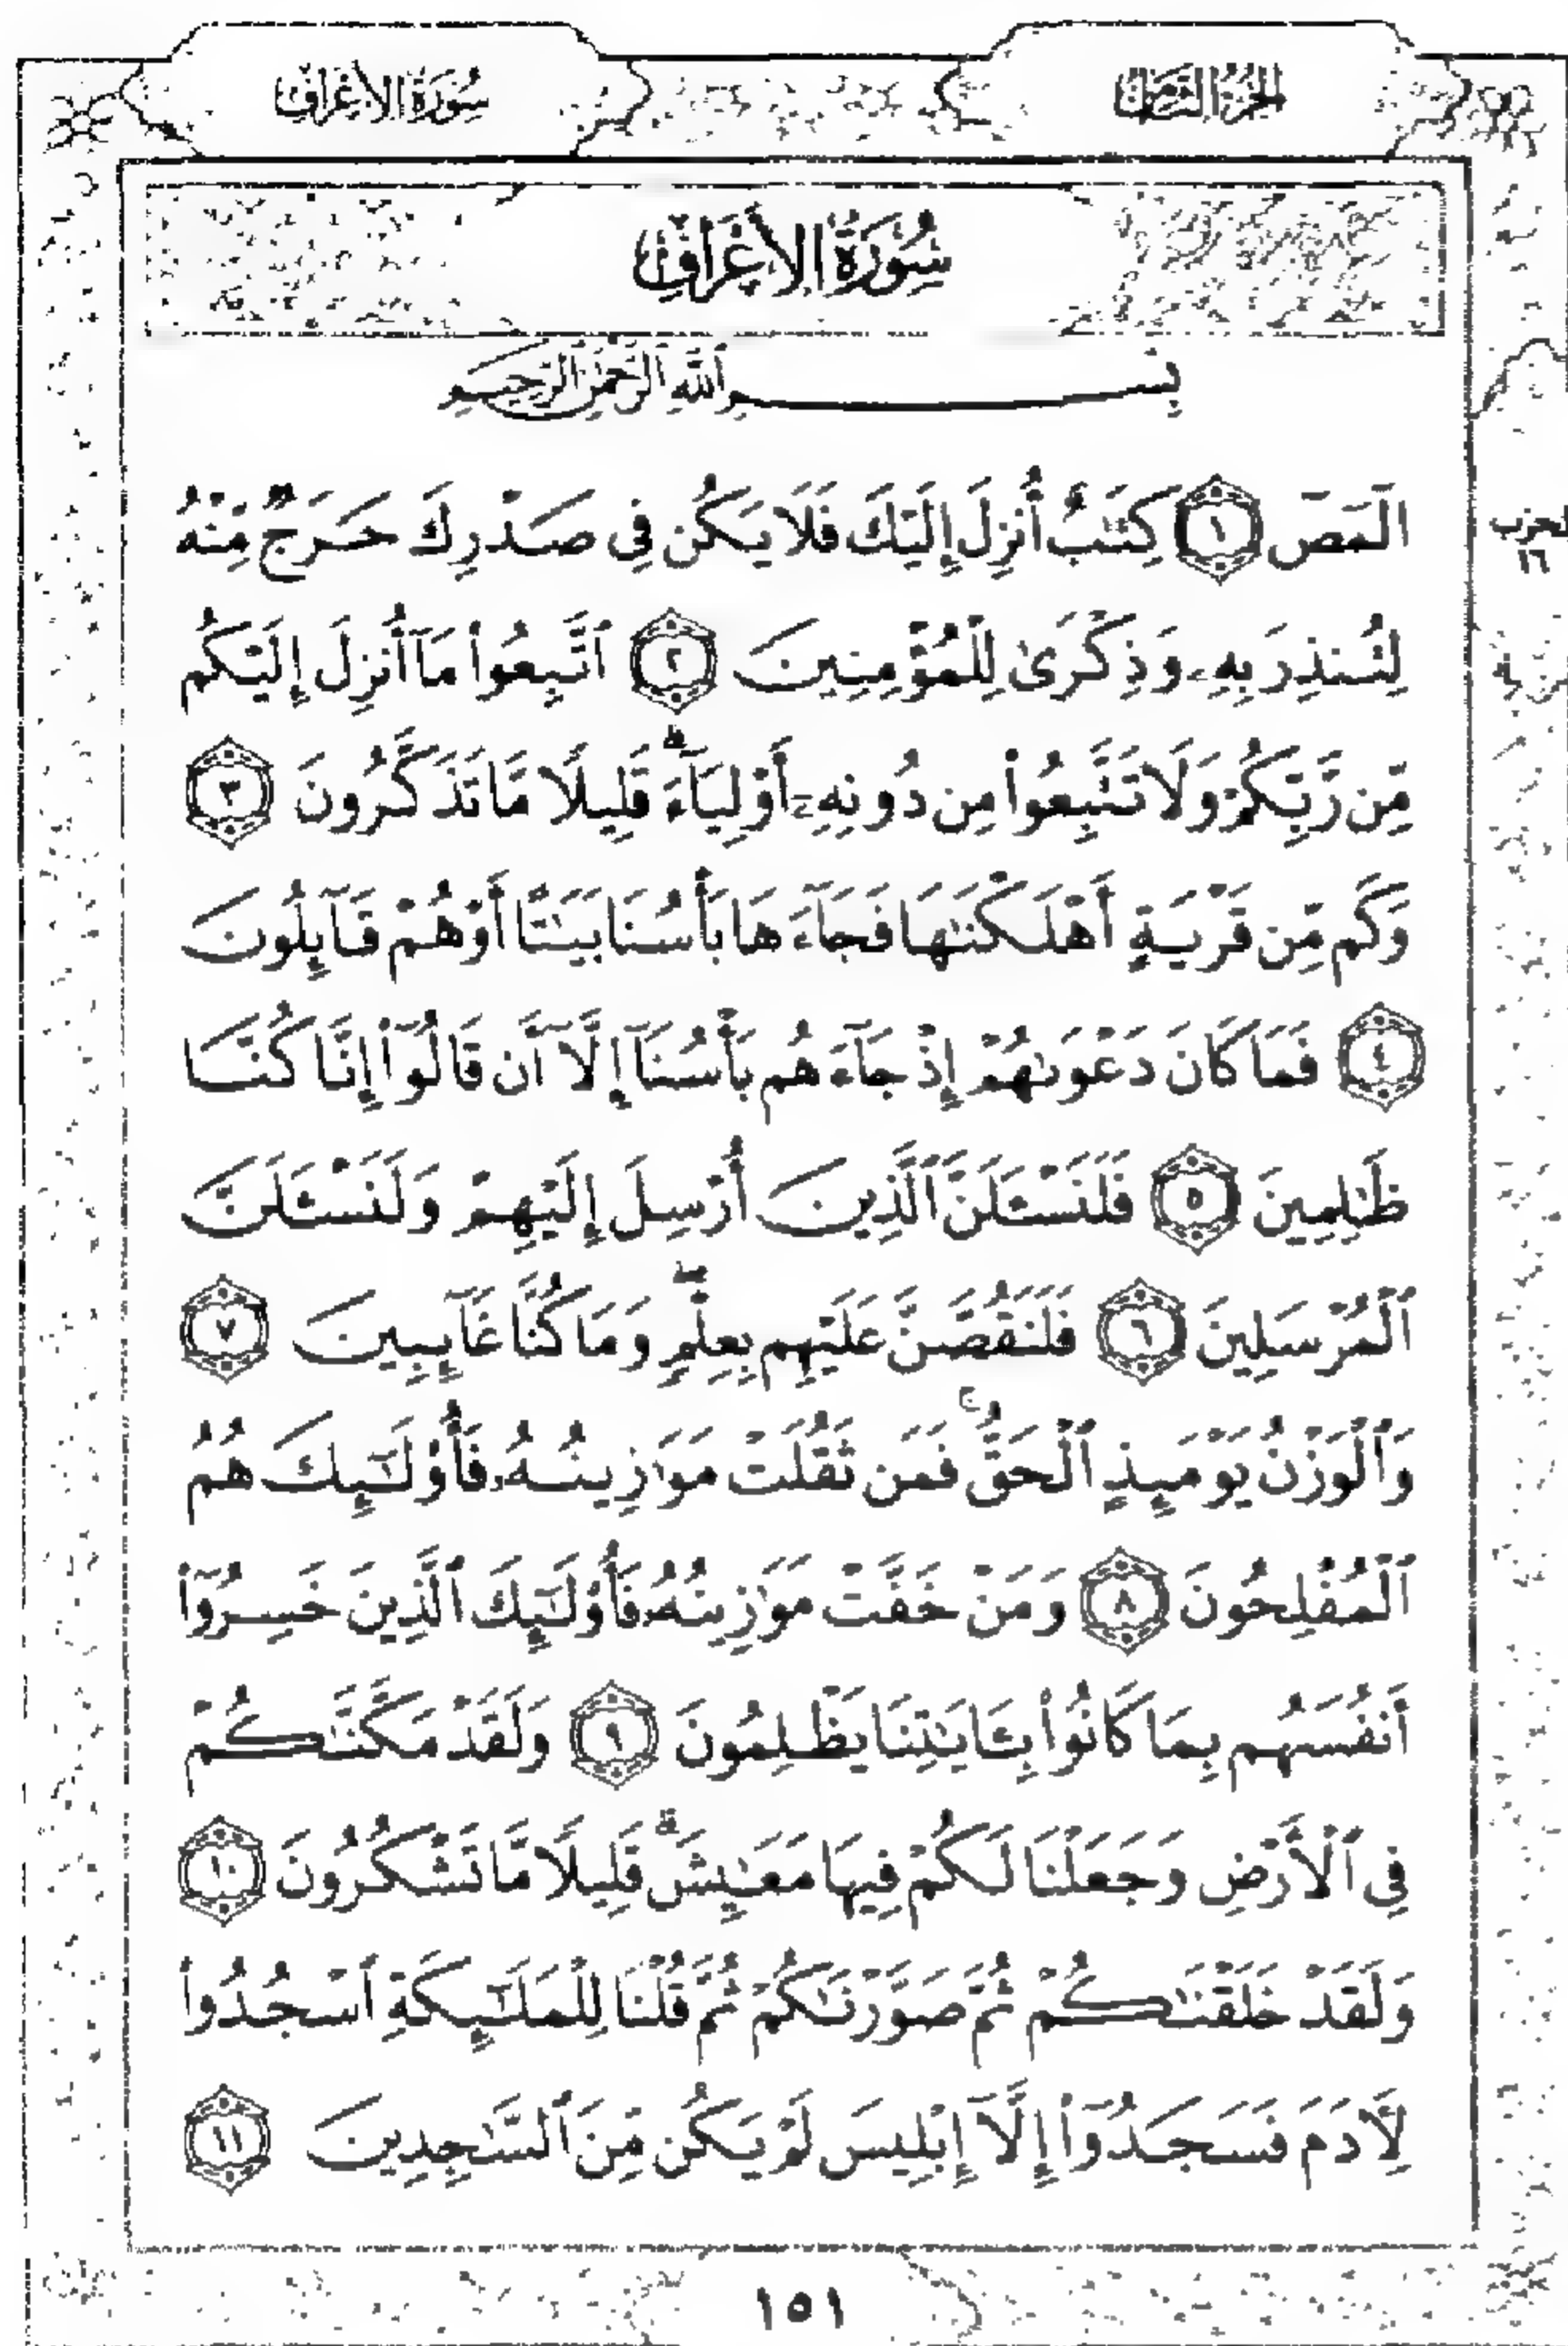 الجزء الثامن
سورة الأعراف
سُورَةُ الأَعْرَافِ
بِسْمِ ٱللَّهِ ٱلرَّحْمَٰنِ ٱلرَّحِيمِ
الٓمٓصٓ ١ كِتَٰبٌ أُنزِلَ إِلَيْكَ فَلَا يَكُن فِى صَدْرِكَ حَرَجٌ مِّنْهُ
الحزب
١٦
لِتُنذِرَ بِهِۦ وَذِكْرَىٰ لِلْمُؤْمِنِينَ ٢ ٱتَّبِعُوا۟ مَآ أُنزِلَ إِلَيْكُم
مِّن رَّبِّكُمْ وَلَا تَتَّبِعُوا۟ مِن دُونِهِۦٓ أَوْلِيَآءَ ۗ قَلِيلًا مَّا تَذَكَّرُونَ ٣
وَكَم مِّن قَرْيَةٍ أَهْلَكْنَٰهَا فَجَآءَهَا بَأْسُنَا بَيَٰتًا أَوْ هُمْ قَآئِلُونَ
٤ فَمَا كَانَ دَعْوَىٰهُمْ إِذْ جَآءَهُم بَأْسُنَآ إِلَّآ أَن قَالُوٓا۟ إِنَّا كُنَّا
ظَٰلِمِينَ ٥ فَلَنَسْـَٔلَنَّ ٱلَّذِينَ أُرْسِلَ إِلَيْهِمْ وَلَنَسْـَٔلَنَّ
ٱلْمُرْسَلِينَ ٦ فَلَنَقُصَّنَّ عَلَيْهِم بِعِلْمٍ ۖ وَمَا كُنَّا غَآئِبِينَ ٧
وَٱلْوَزْنُ يَوْمَئِذٍ ٱلْحَقُّ ۚ فَمَن ثَقُلَتْ مَوَٰزِينُهُۥ فَأُو۟لَٰٓئِكَ هُمُ
ٱلْمُفْلِحُونَ ٨ وَمَنْ خَفَّتْ مَوَٰزِينُهُۥ فَأُو۟لَٰٓئِكَ ٱلَّذِينَ خَسِرُوٓا۟
أَنفُسَهُم بِمَا كَانُوا۟ بِـَٔايَٰتِنَا يَظْلِمُونَ ٩ وَلَقَدْ مَكَّنَّٰكُمْ
فِى ٱلْأَرْضِ وَجَعَلْنَا لَكُمْ فِيهَا مَعَٰيِشَ ۗ قَلِيلًا مَّا تَشْكُرُونَ ١٠
وَلَقَدْ خَلَقْنَٰكُمْ ثُمَّ صَوَّرْنَٰكُمْ ثُمَّ قُلْنَا لِلْمَلَٰٓئِكَةِ ٱسْجُدُوا۟
لِـَٔادَمَ فَسَجَدُوٓا۟ إِلَّآ إِبْلِيسَ لَمْ يَكُن مِّنَ ٱلسَّٰجِدِينَ ١١
١٥١